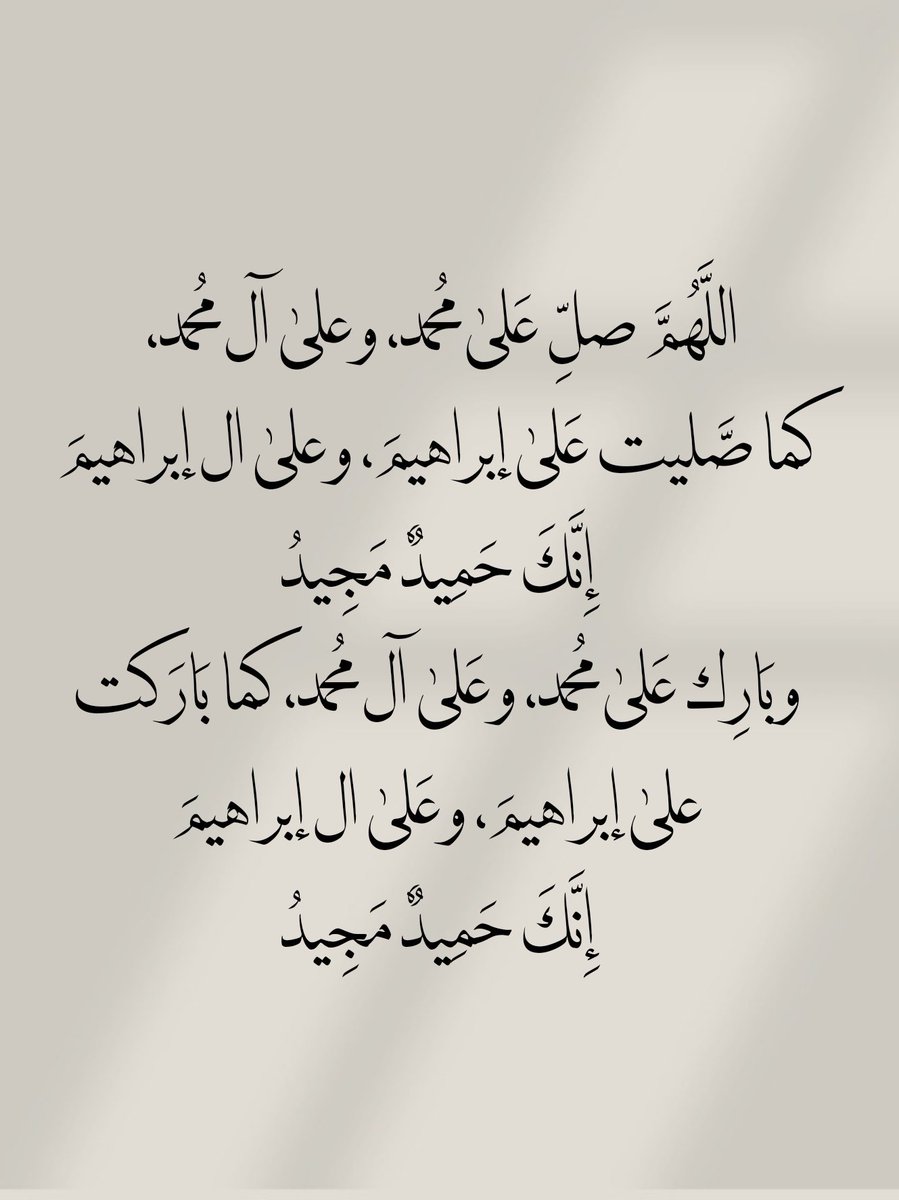 اللَّهُمَّ صلِّ عَلىٰ مُحمد، وعلىٰ آل مُحمد،
كما صَّليت عَلىٰ إبراهيمَ، وعلىٰ ال إبراهيمَ
إِنَّكَ حَمِيدٌ مَجِيدُ
وبَارِك عَلىٰ مُحمد، وعَلىٰ آل مُحمد، كما بَارَكت
علىٰ إبراهيمَ، وعَلىٰ ال إبراهيمَ
إِنَّكَ حَمِيدٌ مَجِيدُ